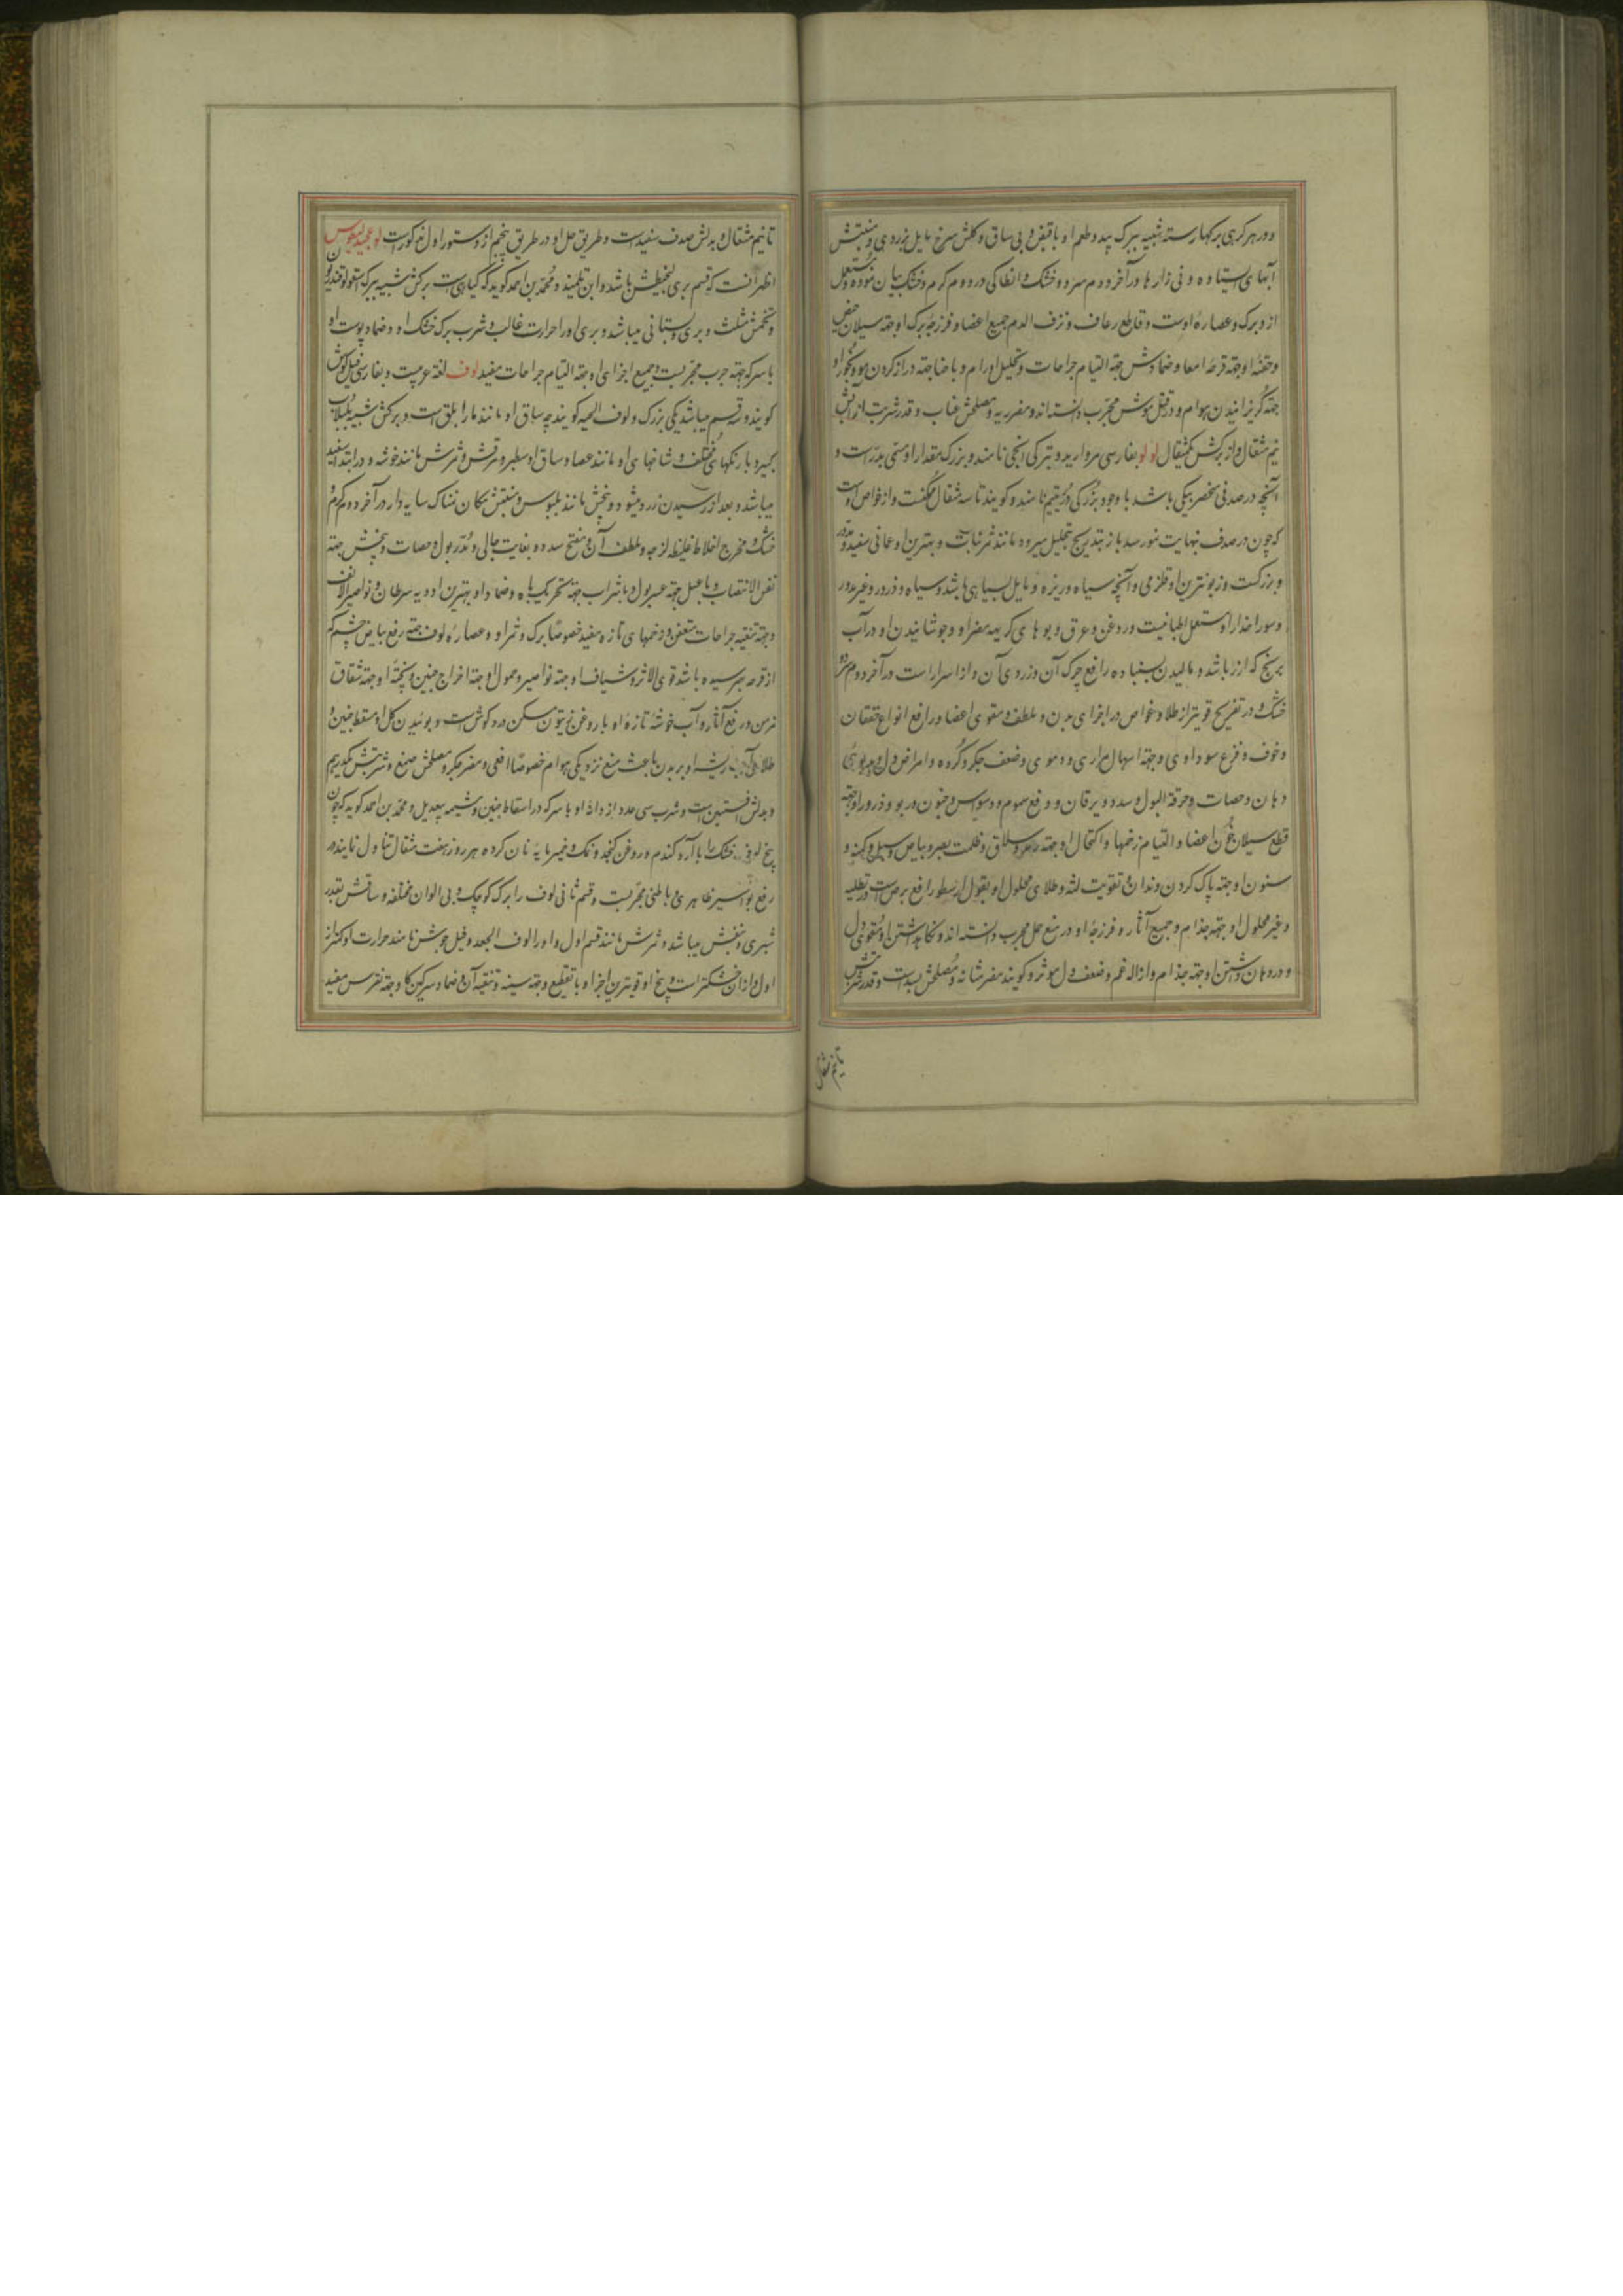 و در هر کرهی برکها رسته شبیه ببرک بید و طعم او با قبض و بی ساق و کلش سرخ مایل بزردی و منبتش
آبهای ایستاده و نی زارها در آخر دوم سرد و خشک و انطاکی در دوم کرم و خشک بیان نموده و مستعمل
ازو برک و عصارهٔ اوست و قاطع رعاف و نزف الدم جمیع اعضا و فرزجهٔ برک او جهة سیلان حیض
و حقنهٔ او جهة قرحهٔ امعا و ضمادش جهة التیام جراحات و تحلیل اورام و با حنا جهة دراز کردن مو و بخور او
جهة کریزانیدن هوام و در قتل موش مجرب دانسته اند و مضر ریه و مصلحش عناب و قدر شربت از آبش
نیم مثقال و از برکش یکمثقال لولو بفارسی مروارید و بترکی انجی نامند و بزرک مقدار او مسمی بدر است و
آنچه در صدفی منحصر بیکی باشد با وجود بزرکی در یتیم نامند و کویند تا سه مثقال میکنست و از خواص اوست
که چون در صدف بنهایت نمو رسد باز بتدریج بتحلیل میرود مانند ثمر نباتات و بهترین او عمانی سفید مدور
و بزرکست و زبونترین او قلزمی و آنچه سیاه و ریزه و مایل بسیاهی باشد و سیاه و زرد و غیر مدور
و سوراخدار او مستعمل اطبا نیست و روغن و عرق و بوهای کریهه مضر او و جوشانیدن او در آب
برنج که از رز باشد و مالیدن بسنباده رافع چرک آن و زردی آن و از اسرار است در آخر دوم سرد و
خشک و در تفریح قویتر از طلا و غواص در اجزای بدن و ملطف و مقوی اعضا و رافع انواع خفقان
و خوف و فزع سوداوی و جهة اسهال مراری و دموی و ضعف جکر و کرده و امراض دل و بدبوئی
دهان و حصات و حرقة البول و سدد و یرقان و دفع سموم و وسواس و جنون و ربو و ذرور او جهة
قطع سیلان خون اعضا و التیام زخمها و اکتحال او جهة دمعه و سلاق و ظلمت بصر و بیاض و سبل و کمنه و
سنون او جهة پاک کردن دندان و تقویت لثه و طلای محلول او بقول ارسطو رافع برص است و تطلیه
و غیر محلول او جهة جذام و جمیع آثار و فرزجهٔ او در منع حمل مجرب دانسته اند و نکاهداشتن او مقوی دل
و در دهان داشتن او جهة جذام و ازالهٔ غم و ضعف دل موثر و کویند مضر مثانه و مصلحش بسد است و قدر شربتش
تا نیم مثقال
تا نیم مثقال و بدلش صدف سفیدست و طریق حل او در طریق پنجم از دستور اول مذکورست لوعجیدلیطوس
اظهر آنست که قسم بری لنجیطس باشد و ابن تلمیذ و محمد بن احمد کویند که کیاهی است برکش شبیه ببرک اسقولوقندریون
و تخمش مثلث و بری و بستانی میباشد و بری او را حرارت غالب و شرب برک خشک او و ضماد پوست او
با سرکه جهة جرب مجربست و جمیع اجزای او جهة التیام جراحات مفید لوف لغة عربیست و بفارسی فیل کوش
کویند و سه قسم میباشد یکی بزرک و لوف الحیه کویند چه ساق او مانند مار ابلق است و برکش شبیه بلبلاب
کبیر و با رنکهای مختلف و شاخهای او مانند عصا و ساق او سطبر و مرقش و ثمرش مانند خوشه و در ابتدا سفید
میباشد و بعد از رسیدن زرد میشود و بیخش مانند بلبوس و منبتش مکان نمناک سایه دار در آخر دوم کرم و
خشک و مخرج اخلاط غلیظهٔ لزجه و ملطف آن و مفتح سدد و بغایت جالی و مدر بول و حصات و بیخش جهة
نفس الانتصاب و با عسل جهة عسر بول و با شراب جهة تحریک باه و ضماد او بهترین ادویه سرطان و نواصیر الانف
و جهة تنقیه جراحات متعفن و زخمهای تازه مفید خصوصا برک و ثمر او و عصارهٔ لوف جهة رفع بیاض چشم که
از قرحه بهم رسیده باشد قوی الاثر و شیاف او جهة نواصیر و حمول او جهة اخراج جنین و پختهٔ او جهة شقاق
مزمن و رفع آثار و آب خوشهٔ تازهٔ او با روغن زیتون مسکن درد کوش است و بوئیدن کل او مسقط جنین و
طلای آب ریشهٔ او بر بدن باعث منع نزدیکی هوام خصوصا افعی و مضر جکر و مصلحش صمغ و شربتش یکدرم
و بدلش افسنتین است و شرب سی عدد از دانهٔ او با سرکه در اسقاط جنین و مشیمه بیعدیل و محمد بن احمد کوید که چون
بیخ لوف خشک را با آرد کندم و روغن کنجد و نمک و خمیر مایه نان کرده هر روز هفت مثقال تناول نمایند در
رفع بواسیر ظاهری و باطنی مجربست و قسم ثانی لوف را برک کوچک و بی الوان مختلفه و ساقش بقدر
شبری و بنفش میباشد و ثمرش مانند قسم اول و او را لوف الجعد و فیل جوش نامند حرارت او کمتر از
اول و از آن خشکتر است و بیخ او قویترین اجزا و با تقطیع و جهة سینه و تنقیه آن و ضماد و سرکین کاو جهة نقرس مفید